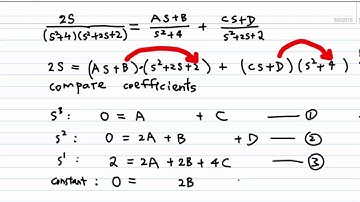 2S/((S²+4)(S²+2S+2)) = (AS+B)/(S²+4) + (CS+D)/(S²+2S+2)
2S = (AS+B)·(S²+2S+2) + (CS+D)(S²+4)
compare coefficients
S³: 0 = A + C — ①
S²: 0 = 2A + B + D — ②
S¹: 2 = 2A + 2B + 4C — ③
constant: 0 = 2B